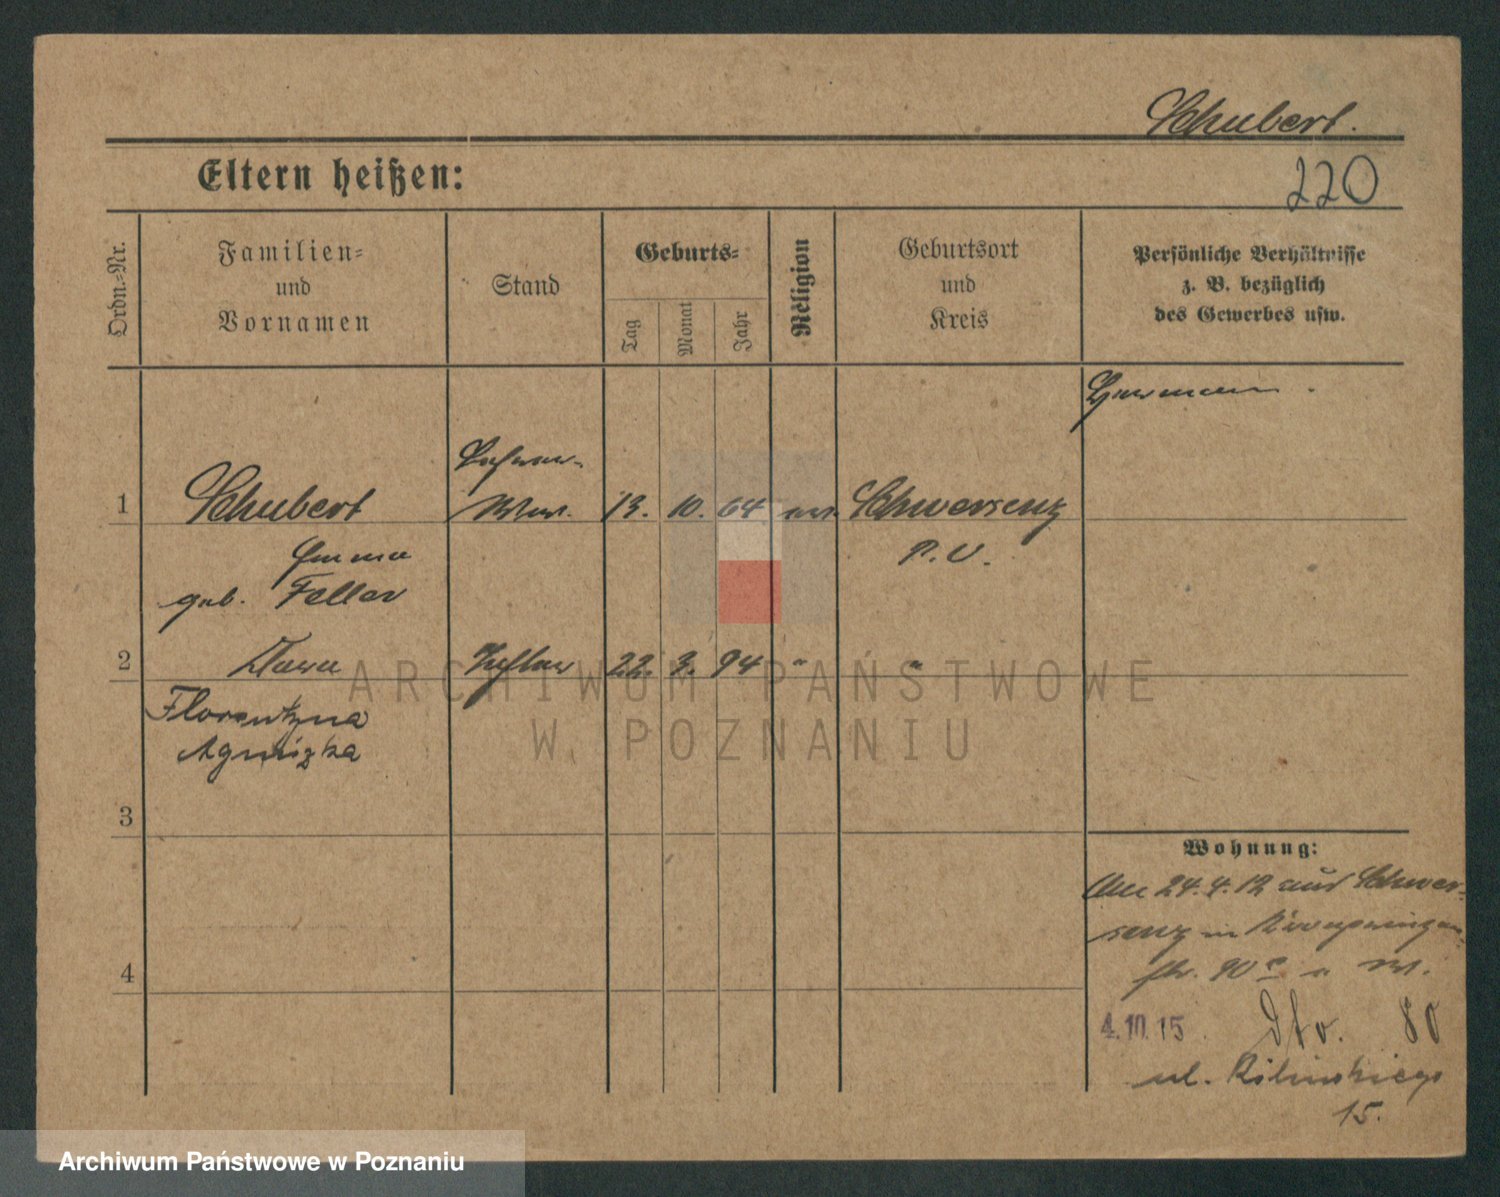 Schubert.
220
Eltern heißen:
Ordn.-Nr.
Familien-
und
Vornamen
Stand
Geburts-
Tag
Monat
Jahr
Religion
Geburtsort
und
Kreis
Persönliche Verhältnisse
z. B. bezüglich
des Gewerbes usw.
1
Schubert
Wwe.
13. 10. 64
Schwersenz
P. O.
Emma
geb. Feller
2
Tochter
22. 3. 94
"
"
Florentyna
Agnieszka
3
4
Wohnung:
24.4.12 aus Schwer-
senz
str. 90
4.10.15. dto. 80
ul. Kilinskiego
15.
ARCHIWUM PAŃSTWOWE
W POZNANIU
Archiwum Państwowe w Poznaniu